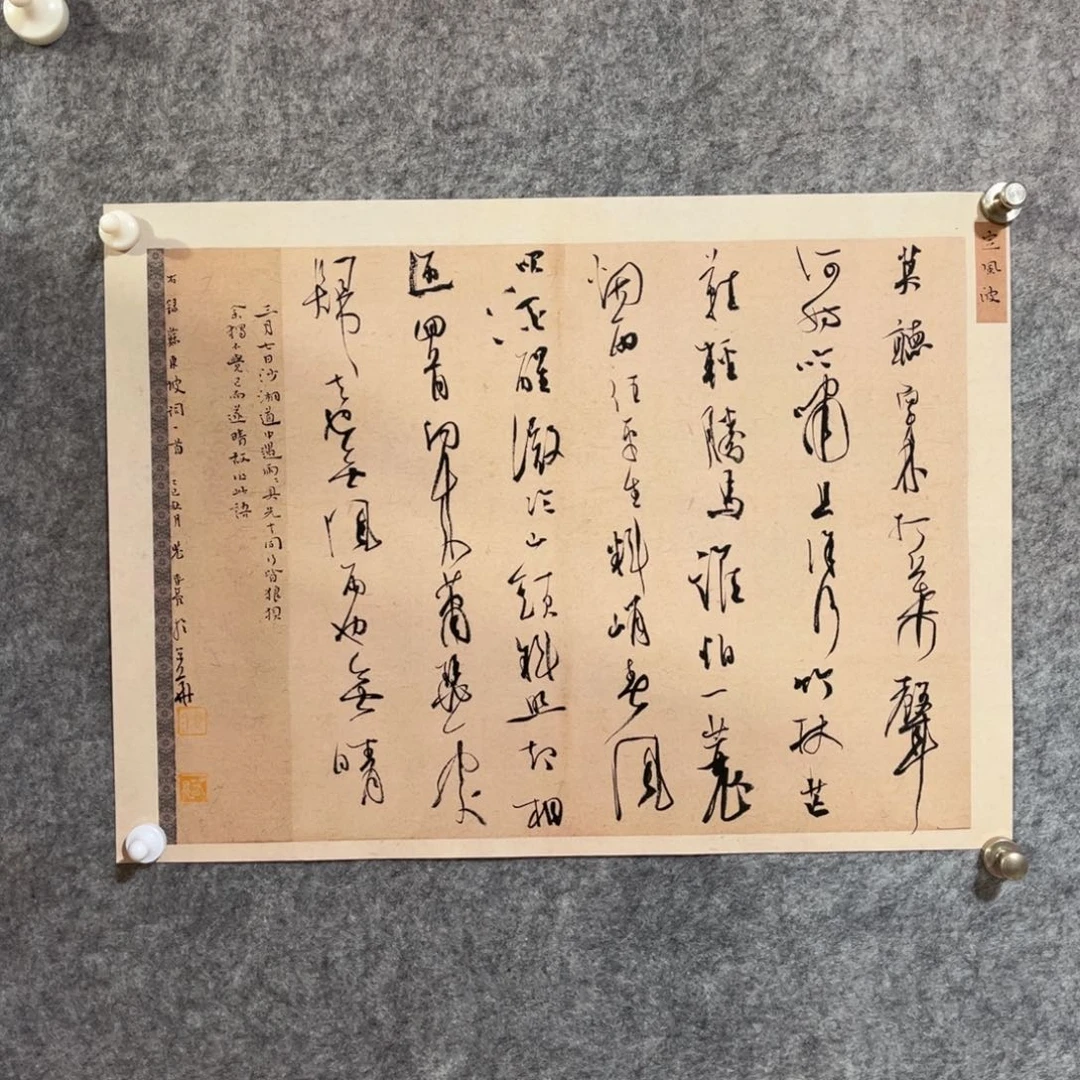 定風波
莫聽穿林打葉聲
何妨吟嘯且徐行竹杖芒
鞋輕勝馬誰怕一蓑
烟雨任平生料峭春風
吹酒醒微冷山頭斜照却相
迎回首向來蕭瑟處
歸去也無風雨也無晴
三月七日沙湖道中遇雨雨具先去同行皆狼狽
余獨不覺已而遂晴故作此
右錄蘇東坡詞一首 乙巳 月